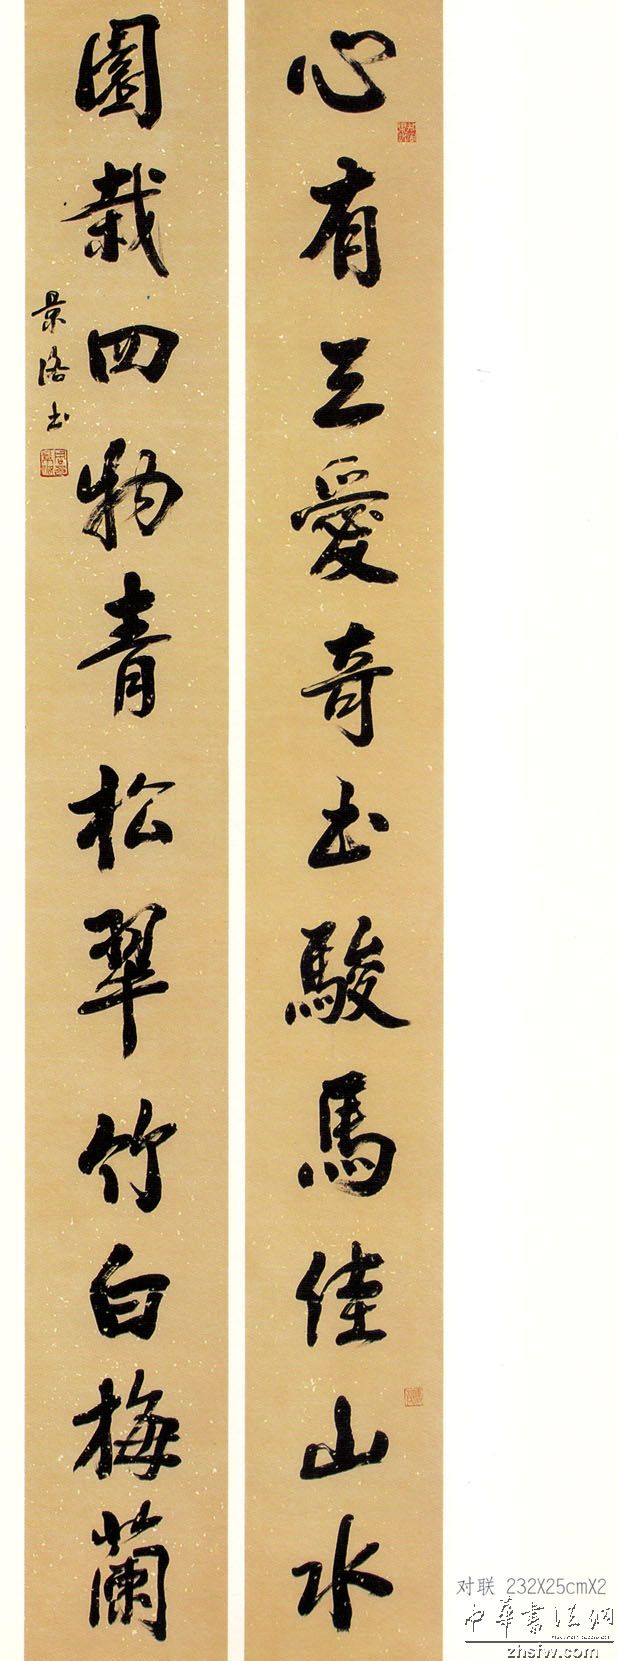 心有三愛奇书駿馬佳山水
園栽四物青松翠竹白梅蘭
景洛书
对联 232X25cmX2
中华书法网
zhsfw.com